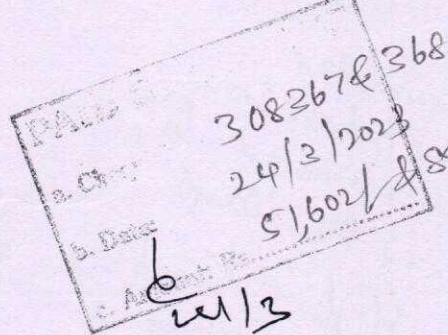 PAID
a. Ch 308367 & 368
b. Date: 24/3/2023
c. Amount: Rs. 51,602/ &
24/3